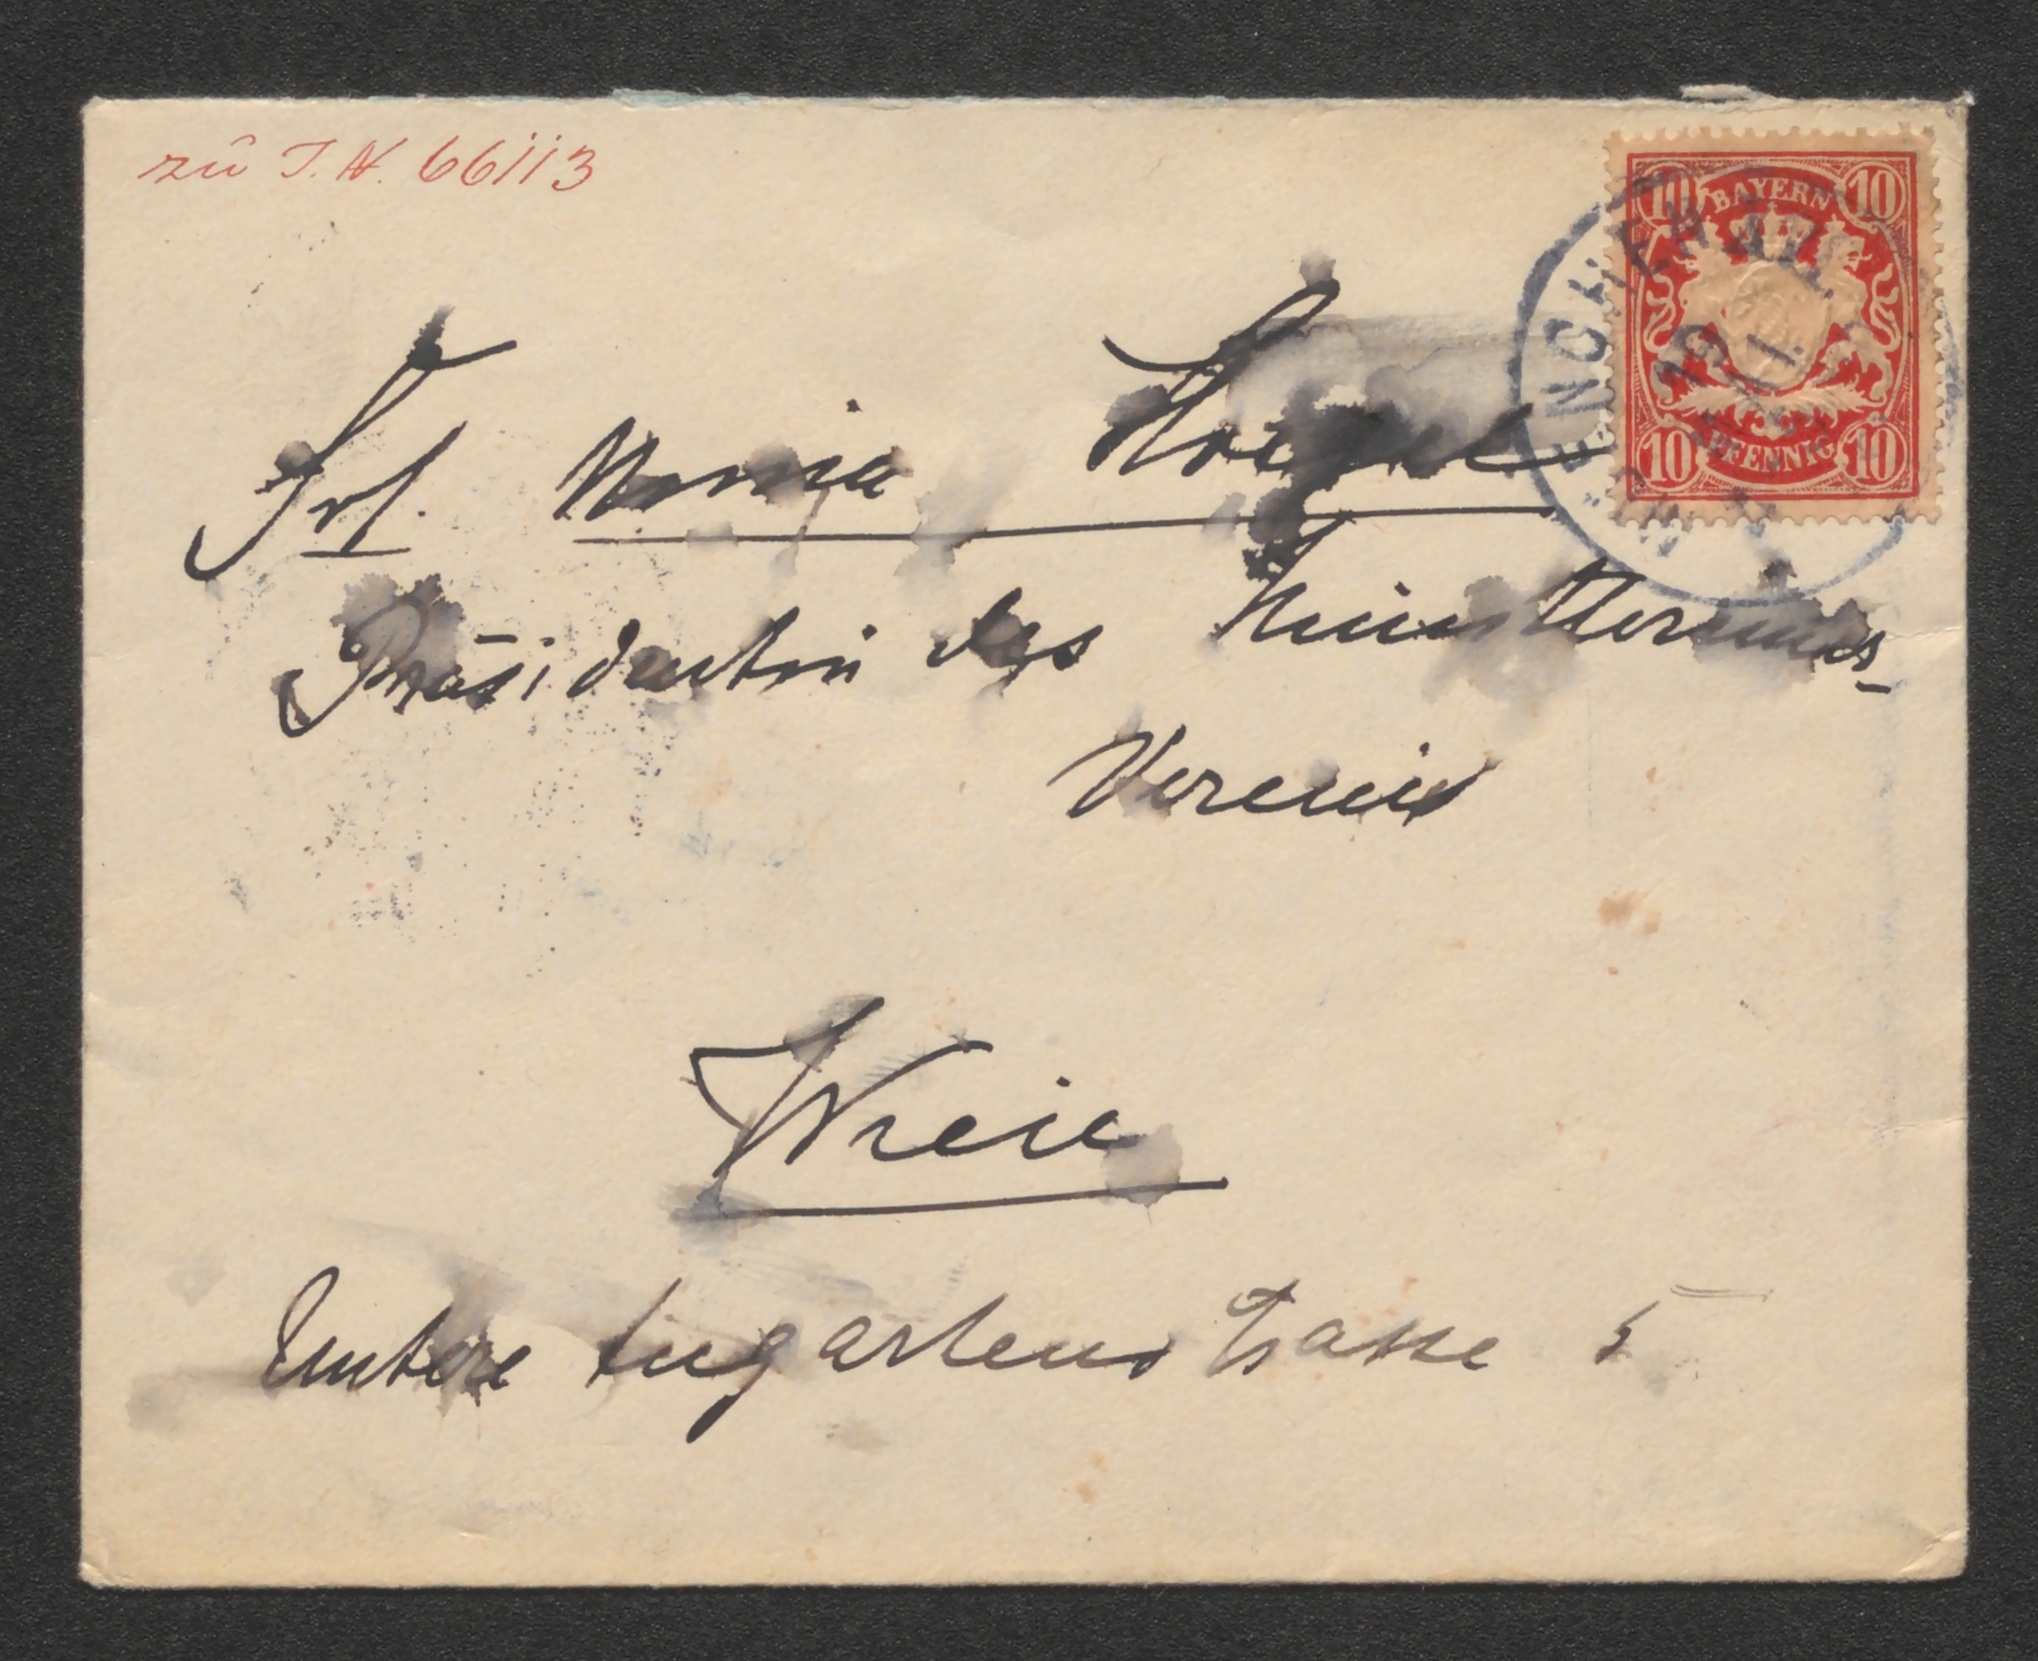 zu I.N. 66113
BAYERN
10 10
MÜNCHEN
10 PFENNIG 10
Frl. Marie
Präsidentin des Künstlerinnen-
Verein
Wien
Untere Augartenstrasse 5